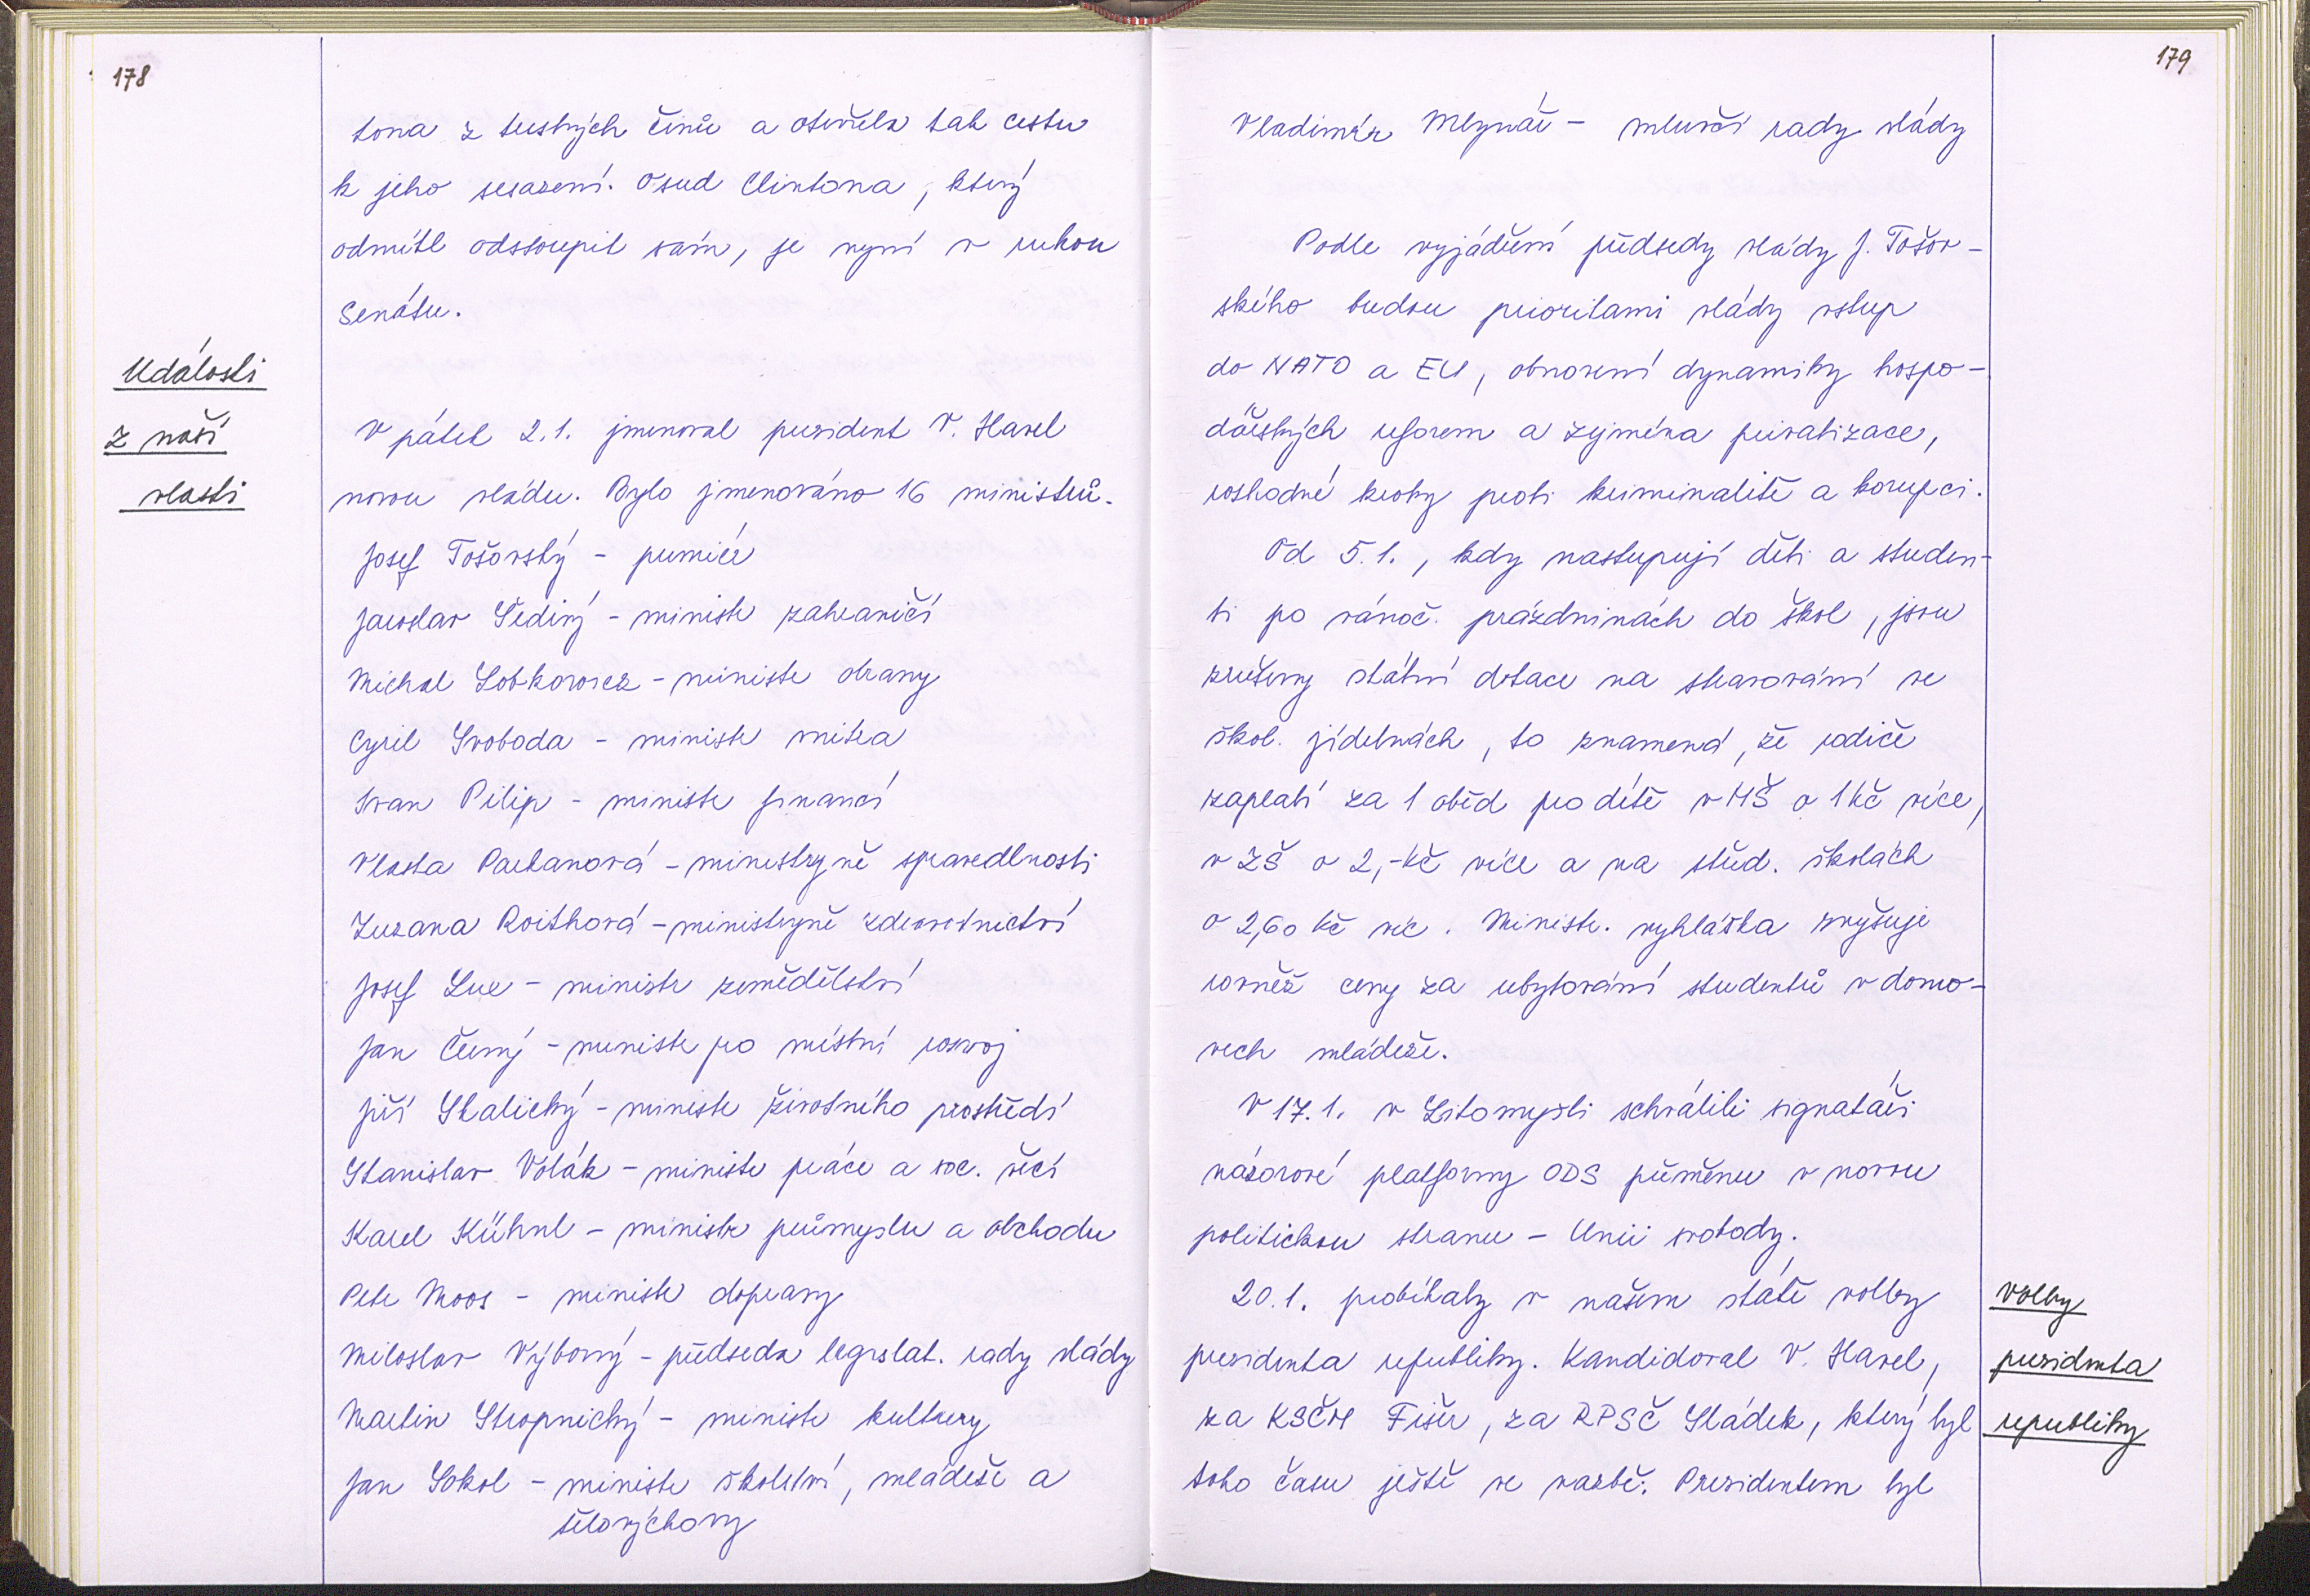 178
tona z trestných činů a otevřela tak cestu
k jeho sesazení. Osud Clintona, který
odmítl odstoupit sám, je nyní v rukou
Senátu.
Události
z naší
vlasti
V pátek 2.1. jmenoval prezident V. Havel
novou vládu. Bylo jmenováno 16 ministrů.
Josef Tošovský - premiér
Jaroslav Šedivý - ministr zahraničí
Michal Lobkowicz - ministr obrany
Cyril Svoboda - ministr vnitra
Ivan Pilip - ministr financí
Vlasta Parkanová - ministryně spravedlnosti
Zuzana Roithová - ministryně zdravotnictví
Josef Lux - ministr zemědělství
Jan Černý - ministr pro místní rozvoj
Jiří Skalický - ministr životního prostředí
Stanislav Volák - ministr práce a soc. věcí
Karel Kühnl - ministr průmyslu a obchodu
Petr Moos - ministr dopravy
Miloslav Výborný - předseda legislat. rady vlády
Martin Stropnický - ministr kultury
Jan Sokol - ministr školství, mládeže a
tělovýchovy
179
Vladimír Mlynář - mluvčí rady vlády
Podle vyjádření předsedy vlády J. Tošov-
ského budou prioritami vlády vstup
do NATO a EU, obnovení dynamiky hospo-
dářských reforem a zejména privatizace,
rozhodné kroky proti kriminalitě a korupci.
Od 5.1., kdy nastupují děti a studen-
ti po vánoč. prázdninách do škol, jsou
zrušeny státní dotace na stravování ve
škol. jídelnách, to znamená, že rodiče
zaplatí za 1 oběd pro dítě v MŠ o 1 Kč více,
v ZŠ o 2,- Kč více a na střed. školách
o 2,60 Kč víc. Ministr. vyhláška zvyšuje
rovněž ceny za ubytování studentů v domo-
vech mládeže.
V 17.1. v Litomyšli schválili signatáři
názorové platformy ODS přeměnu v novou
politickou stranu - Unii svobody.
20.1. probíhaly v našem státě volby
prezidenta republiky. Kandidoval V. Havel,
za KSČM Fišer, za RPSČ Sládek, který byl
toho času ještě ve vazbě. Prezidentem byl
Volby
prezidenta
republiky